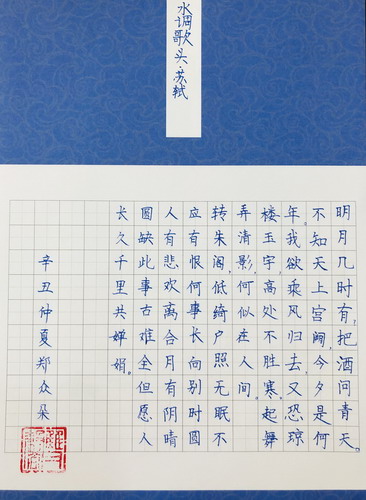 水调歌头·苏轼
明月几时有,把酒问青天。
不知天上宫阙,今夕是何
年。我欲乘风归去,又恐琼
楼玉宇,高处不胜寒。起舞
弄清影,何似在人间。
转朱阁,低绮户照无眠不
应有恨何事长向别时圆
人有悲欢离合月有阴晴
圆缺此事古难全但愿人
长久千里共婵娟。
辛丑仲夏郑众朵